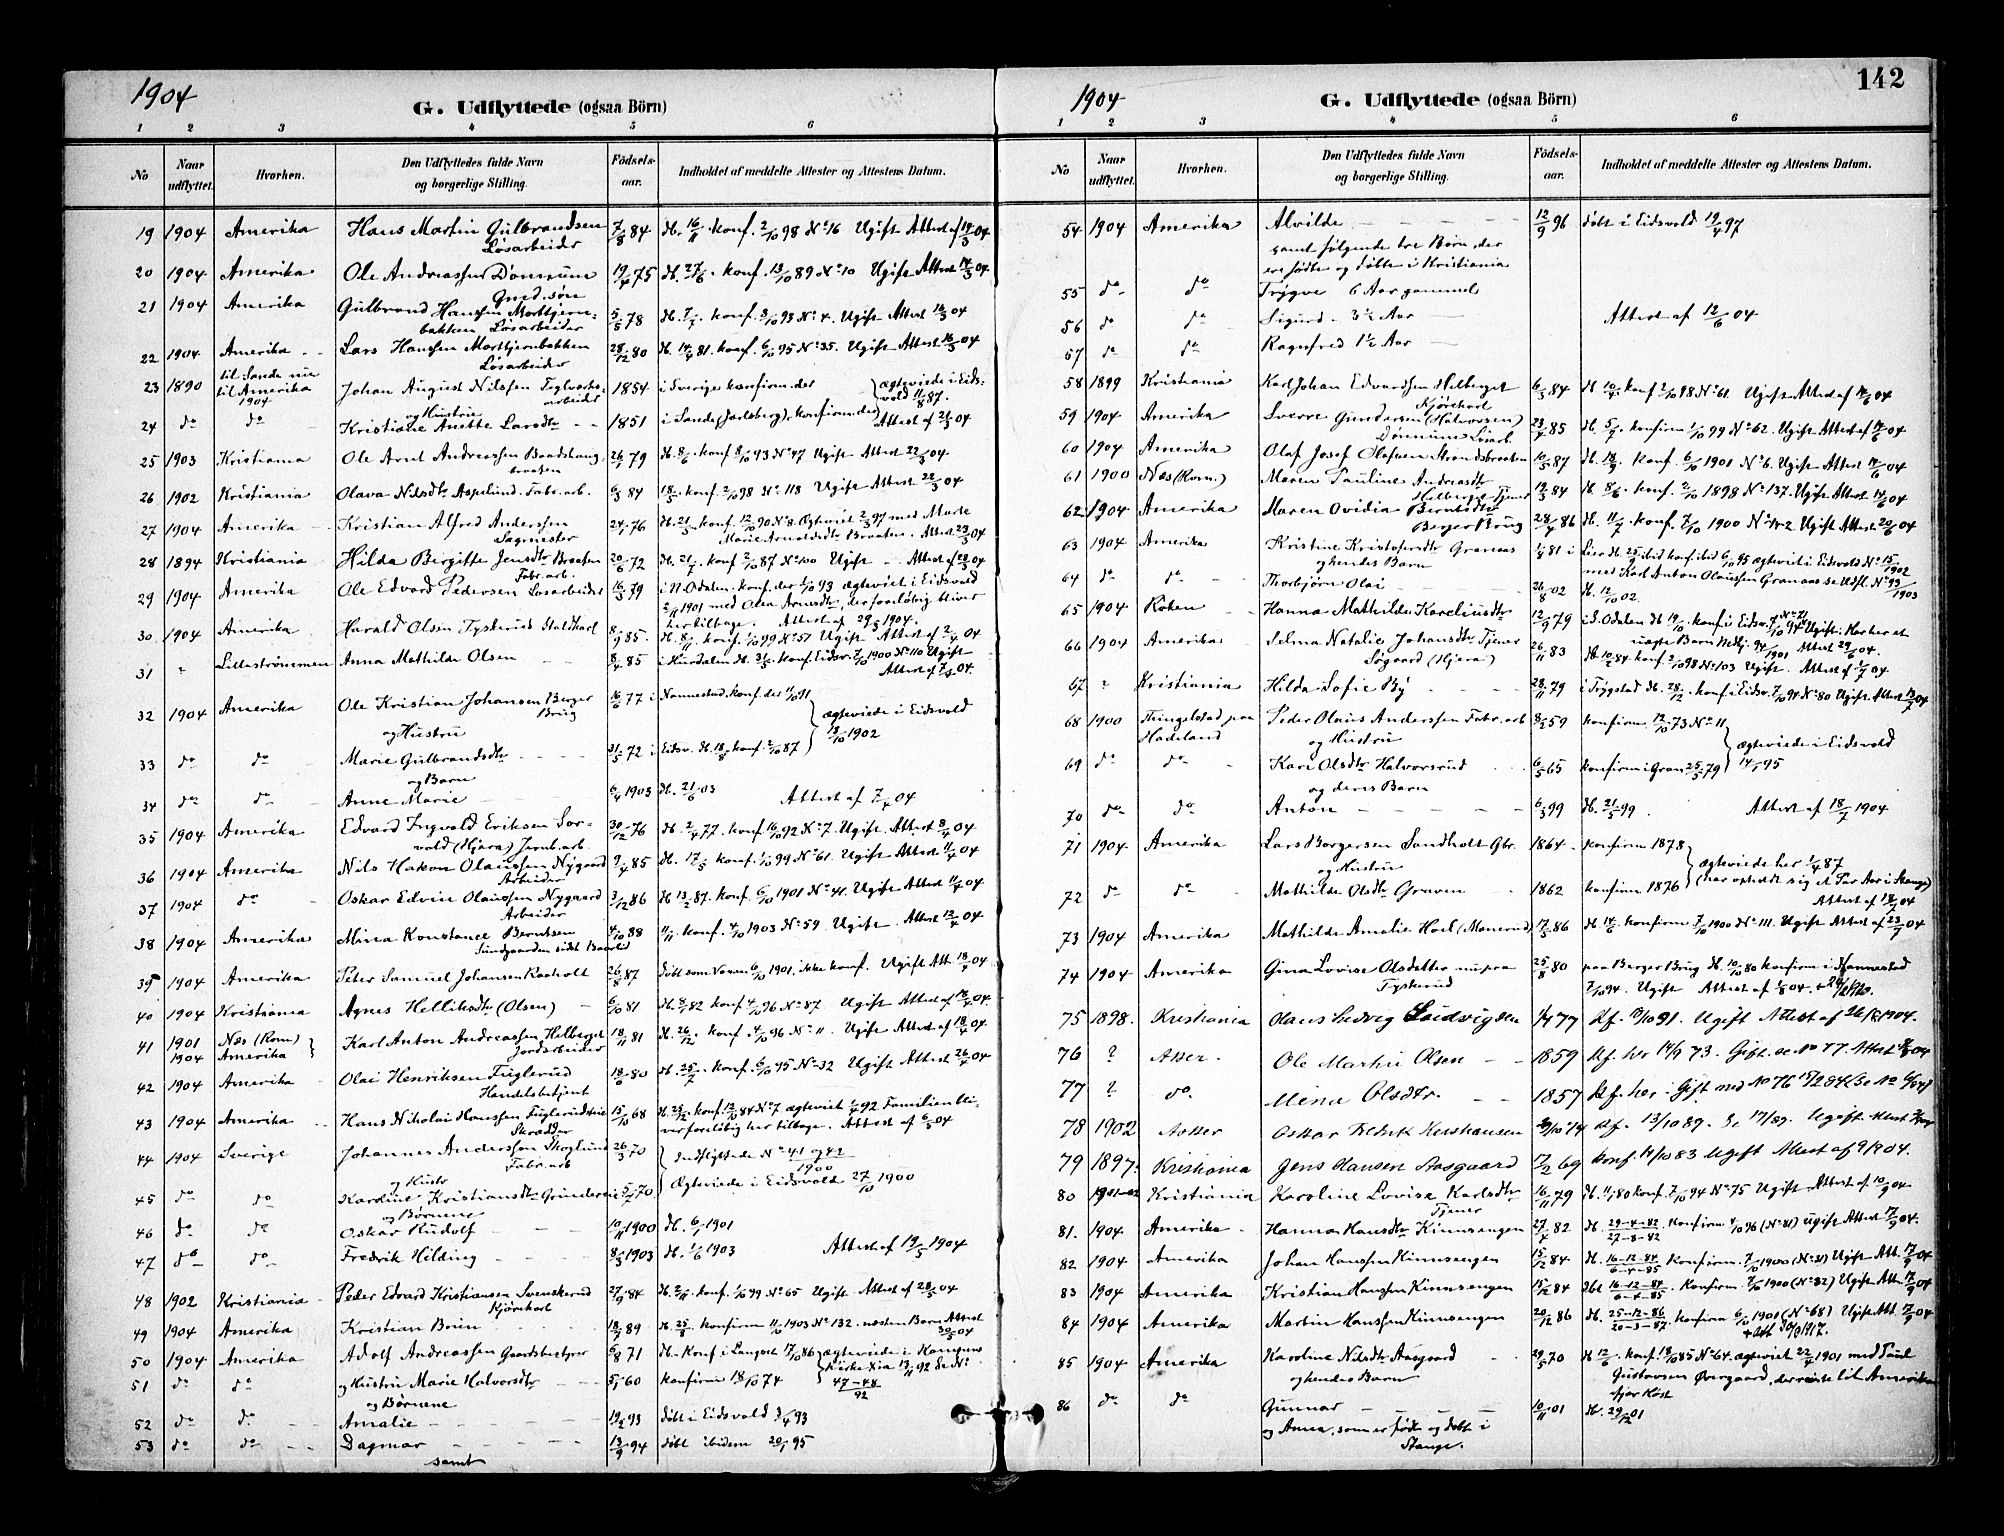 1904
G. Udflyttede (ogsaa Börn)
1 2 3 4 5 6
No
Naar udflyttet.
Hvorhen.
Den Udflyttedes fulde Navn og borgerlige Stilling.
Födsels-aar.
Indholdet af meddelte Attester og Attestens Datum.
19 1904 Amerika Hans Martin Gulbrandsen 7/8 84 db. 16/11 konf. 2/10 98 No 16 Ugift Attest af 14/3 04
Løsarbeider
20 1904 Amerika Ole Andreassen Dönnum 19/4 75 db. 27/6 konf. 13/10 89 No 10 Ugift Attest 14/3 04
Gmd. søn
21 1904 Amerika Gulbrand Hanssen Morttjern- 5/5 78 db. 7/7 konf. 8/10 93 No 4. Ugift Attest 14/3 04
bakken Løsarbeider
22 1904 Amerika Lars Hanssen Morttjernbakken 28/12 80 db. 14/4 81. konf. 6/10 95 No 35. Ugift Attest 16/3 04
Løsarbeider
23 1890 til Sande nu til Amerika 1904 Johan August Nilssen Teglverks- arbeider 1854 i Sverige konfirm. der ægteviede i Eids-
vold 11/8 87.
og Hustru
24 do do Kristiane Anette Larsdtr 1851 i Sande (Jarlsberg), konfirm. der Attest af 21/3 04
25 1903 Kristiania Ole Arnt Andreassen Baadshaug- 26/1 79 db. 8/6 konf 8/10 93 No 47 Ugift Attest 22/3 04
braaten
26 1902 Kristiania Olava Nilsdtr Aspelund. Fabr. arb. 6/3 84 18/5 konf. 2/10 98 No 118 Ugift Attest 22/3 04
27 1904 Amerika Kristian Alfred Anderssen 24/1 76 db. 21/5 konf. 12/10 90 No 8. Ægteviet 2/3 97 med Marte
Sagmester Marie Arnoldsdtr Braaten. Attest 23/3 04
28 1894 Kristiania Hilda Birgitte Jensdtr Braaten 20/6 72 db. 21/7 konf 2/10 87 No 100 Ugift Attest af 28/3 04
Fabr. arb.
29 1904 Amerika Ole Edvard Pedersen Løsarbeider 16/3 79 i N. Odalen. konf. der 1/10 93 ægteviet i Eidsvold
2/11 1901 med Olea Arnesdtr, der foreløbig bliver
her tilbage. Attest af 29/3 1904.
30 1904 Amerika Harald Olsen Tyskerud Staldkarl 8/9 85. db. 8/11 konf. 1/10 99 No 57 Ugift Attest af 2/4 04
31 " Lillestrømmen Anna Mathilde Olsen 8/4 85 i Hurdalen db. 31/5 konf. Eidsv. 7/10 1900 No 110 Ugift
Attest af 7/4 04.
32 1904 Amerika Ole Kristian Johansen Berger 16/6 77 i Nannestad. konf. der 11/10 91
Brug
og Hustru ægteviede i Eidsvold
13/10 1902
33 do do Marie Gulbrandsdtr 31/5 72 i Eidsv. db. 18/8 konf. 2/10 87
og Barn
34 do do Anne Marie 6/4 1903 db. 21/6 03 Attest af 7/4 04
35 1904 Amerika Edvard Ingvald Eriksen Sor- 30/12 76 db. 2/4 77. konf 16/10 92 No 7. Ugift. Attest 8/4 04
vold (Hjera) Jernb. arb.
36 1904 Amerika Nils Hakon Olaussen Nygaard 9/4 85 db. 17/5 konf. 1/10 99 No 61. Ugift Attest 11/4 04
Arbeider
37 1904 do Oskar Edvin Olaussen Nygaard 3/12 86 db 13/2 87. konf. 6/10 1901 No 41. Ugift Attest 11/4 04
Arbeider
38 1904 Amerika Mina Konstance Berntsen 4/10 88 11/11 konf. 4/10 1903 No 59 Ugift. Attest 12/4 04
Sundgaarden
39 1904 Amerika Peter Samuel Johansen Raaholt 26/8 87 døbt som Voxen 6/10 1901, ikke konf. Ugift Att. 18/4 04
40 1904 Kristiania Agnes Helliksdtr (Olsen) 6/10 81 db. 8/1 82 konf 4/10 96 No 87 Ugift Attest af 18/4 04.
41 1901 Nes (Rom.) Karl Anton Andreassen Helberget 18/11 81 db. 26/12 konf. 4/10 96 No 11. Ugift Attest af 18/4 04.
1904 Amerika Jordarbeider
42 1904 Amerika Olai Henriksen Fuglerud 18/6 80 db. 25/7 konf. 6/10 95 No 32 Ugift Attest 26/4 04
Handelsbetjent
43 1904 Amerika Hans Nikolai Hanssen Fuglerudseie 15/10 68 db. 29/12 konf. 12/10 84 No 7 ægteviet 1/4 92 Familien bli-
Skrædder ver foreløbig her tilbage. Attest af 6/5 04
44 1904 Sverige Johannes Anderssen Skoglund 26/3 70 Indflyttede No 41 og 42
Fabr. arb 1900
og Hustr Ægteviede i Eidsvold 27/10 1900
45 do do Karoline Kristiansdtr Grinderseie 5/1 70
og Børnene
46 do do Oskar Rudolf 10/11 1900 db. 6/1 1901
47 do do Fredrik Hilding 8/5 1903 db. 1/6 1903 Attest af 19/5 1904
48 1902 Kristiania Peder Edvard Kristiansen Svenskerud 27/9 84 db. 2/11 konf. 1/10 99 No 65 Ugift. Attest af 28/5 04
Kjørekarl
49 1904 Amerika Kristian Bruun 18/7 89 db. 25/8 konfirm 11/10 1903 No 132. næsten Barn Attest
30/5 04
50 1904 Amerika Adolf Andreassen Gaardsbestyrer 6/8 71 db. Konf i Langset 17/10 86 ægteviede i Kampens
Kirke Xia 13/11 92 Se No
51 do do og Hustru Marie Halvorsdtr 5/1 60 konfirm 18/10 74 47-48
92
og Børnene
52 do do Amalie 19/2 93 døbt i Eidsvold 3/4 93
53 do do Dagmar 13/9 94 døbt ibidem 20/1 95
samt
1904
142
G. Udflyttede (ogsaa Börn)
1 2 3 4 5 6
No
Naar udflyttet.
Hvorhen.
Den Udflyttedes fulde Navn og borgerlige Stilling.
Födsels-aar.
Indholdet af meddelte Attester og Attestens Datum.
54 1904 Amerika Alvilde 12/9 96 døbt i Eidsvold 19/4 97
samt følgende tre Børn, der
ere fødte og døbte i Kristiania
55 do do Trygve 6 Aar gammel
56 do do Sigurd - 3½ Aar Attest af 12/6 04
57 do do Ragnfred 1½ Aar
58 1899 Kristiania Karl Johan Edvardsen Helberget 6/3 84 db 10/4 konf 2/10 98 No 61. Ugift Attest af 14/6 04
Kjørekarl
59 1904 Amerika Sverre Gundersen (Halvorsen) 22/4 85 db. 5/7 konfirm 1/10 99 No 62. Ugift Attest af 14/6 04
Dönnum Løsarb.
60 1904 Amerika Olaf Josef Olafsen Strandsbraaten 10/5 87 db. konf. 6/10 1901 No 6. Ugift Attest 14/6 04
61 1900 Nes (Rom.) Maren Pauline Andreasdtr 12/3 84 db. 8/6 konf. 2/10 1898 No 137. Ugift Attest 14/6 04
Helberget Tjener
62 1904 Amerika Maren Ovidia Berntsdtr 28/4 86 db. 11/7 konf. 7/10 1900 Ugift Attest 20/6 04
Berger Brug
63 1904 Amerika Kristine Kristofersdtr Granaas 1/4 81 i Lier db 25/9 ibid konf. ibid 6/10 95 ægteviet i Eidsvold No 15/1902
og hendes Barn med Karl Anton Olaussen Granaas se Udfl. No 93/1903
64 do do Thorbjørn Olai 26/8 02 db. 12/10 02.
65 1904 Röken Hanna Mathilde Koreliusdtr 12/9 79 i S. Odalen db 19/10 konf i Eidsv. 7/10 94 No 71 Ugift. Har her et
uægte Barn 94/1901 Attest 29/6 04.
66 1904 Amerika Selma Natalie Johansdtr Tjener 26/11 83 db 10/2 84 konf. 2/10 98 No 103 Ugift. Attest af 1/7 04
Søgaard (Hjera)
67 " Kristiania Hilda Sofie By 28/11 79 i Trygstad db. 28/12 konf i Eidsv. 7/10 94 No 80 Ugift Attest 13/7 04
68 1900 Tingelstad paa Peder Olaus Anderssen Fabr. arb 8/2 59 konfirm 12/10 73 No 11
Hadeland og Hustru ægteviede i Eidsvold
14/1 95
69 do do Kari Olsdtr Halvorsrud 6/5 65 konfirm i Gran 25/5 79
og deres Barn
70 do do Anton 6/3 99 db. 21/5 99. Attest af 18/7 1904
71 1904 Amerika Lars Borgersen Sandholt Gbr. 1864 konfirm 1878
og Hustru ægteviede her 1/4 87
72 do do Mathilde Olsdtr Graven 1862 konfirm 1876 (har opholdt sig et Par Aar i Stange)
Attest af 18/7 04
73 1904 Amerika Mathilde Amalie Hoel (Monerud) 17/5 86 db 14/ konfirm 7/10 1900 No 111. Ugift Attest af 23/7 04
74 1904 Amerika Gina Lovise Olsdatter nu paa 25/8 80 paa Berger Brug db. 10/10 80 konfirm i Nannestad
Tyskerud 7/10 94. Ugift Attest af 1/8 04.
75 1898. Kristiania Olaus Ludvig Ludvigsen 77 Kf. 91. Ugift Attest af 1904.
76 ? Asker. Ole Martin Olsen 1859 Kf. her 14/9 73. Gift se No 77. Attest 04
77 ? do. Mina Olsdtr. 1857 Kf. her. Gift med No 76
78 1902 Asker Oskar Fredrik Kristiansen Kf. 13/10 89. Ugift Attest
79 1897. Kristiania Jens Hansen Aasgaard 17/2 69 konf. 14/10 83 Ugift Attest af 04.
80 1901-02 Kristiania Karoline Lovise Karlsdtr 16/11 79 db. 11/1 80 konf. 7/10 94 No 75 Ugift Attest af 10/9 04
Tjener
81. 1904 Amerika Hanna Hansdtr Kinnsengen 27/4 82 db. 29-4-82 / 27-8-82 Konfirm 4/10 96 (No 81) Ugift Attest 17/9 04.
82 1904 Amerika Johan Hanssen Kinnsengen 15/12 84 db. 16-12-84 / 6-4-85 Konfirm. 7/10 1900 (No 31) Ugift Att. 17/9 04
83 1904 Amerika Kristian Hanssen Kinnsengen 15/12 84 dbt 16-12-84 / 6-4-85. Konfirm. 7/10 1900 (No 32) Ugift Att. 17/9 04
84 1904 Amerika Martin Hanssen Kinnsengen 20/12 86 db. 25-12-86 / 20-3-87. Konfirm 6/10 1901 (No 68) Ugift Att. 17/9 04
85 1904 Amerika Karoline Nilsdtr Aasgaard 29/5 70 db 12/6 konf. 18/10 85 No 64. ægteviet 22/4 1901 med Paul
og hendes Barn Gustavsen Övergaard, der reiste til Amerika
ifjor Høst
86 do do Gunnar 10/11 01 db. 29/12 01
og Anna, som er født og døbt i
Stange.